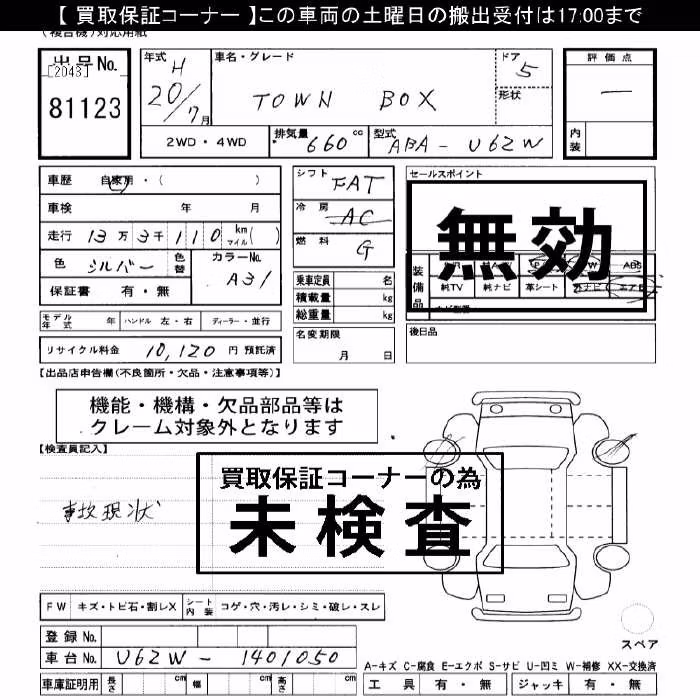 【 買取保証コーナー 】この車両の土曜日の搬出受付は17:00まで
(複合機)対応用紙
出品No.
[2043]
81123
年式 H
20/7月
車名・グレード
TOWN BOX
ドア 5
形状
評価点
一
内装
2WD・4WD
排気量 660 cc
型式 ABA-U62W
車歴 自家用・( )
車検 年 月
走行 13万3千110 km マイル( )
色 シルバー 色替
カラーNo. A31
保証書 有・無
シフト FAT
冷房 AC
燃料 G
乗車定員 名
積載量 kg
総重量 kg
セールスポイント
無効
装備品
ABS
純TV 純ナビ 革シート エアB
モデル年式 年 ハンドル 左・右 ディーラー・並行
名変期限
月 日
後日品
リサイクル料金 10,120 円 預託済
【出品店申告欄(不良箇所・欠品・注意事項等)】
機能・機構・欠品部品等は
クレーム対象外となります
【検査員記入】
買取保証コーナーの為
未検査
事故現状
FW キズ・トビ石・割レX シート内装 コゲ・穴・汚レ・シミ・破レ・スレ
登録No.
車台No. U62W-1401050
車庫証明用 長さ cm 幅 cm 高さ cm
スペア
A-キズ C-腐食 E-エクボ S-サビ U-凹ミ W-補修 XX-交換済
工具 有・無 ジャッキ 有・無